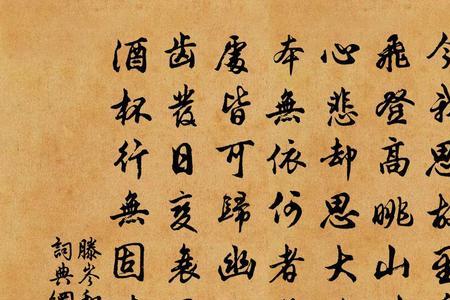 今我思故
飛登高眺山
心悲却思大
本無依何者
處皆可歸幽
齒發日變衰
酒杯行無固
滕岑和
詞典網